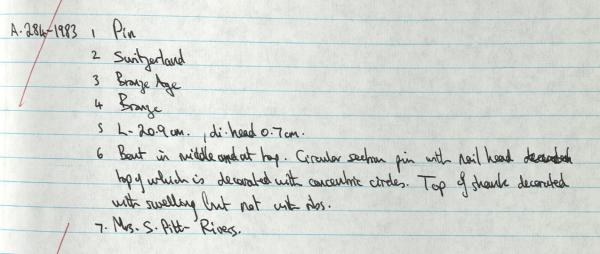 A.284-1983 1 Pin
2 Switzerland
3 Bronze Age
4 Bronze
5 L- 20.9 cm. , di. head 0.7 cm.
6 Bent in middle and at top. Circular section pin with nail head decorated
top of which is decorated with concentric circles. Top of shank decorated
with swelling but not with ribs.
7. Mrs. S. Pitt-Rivers.